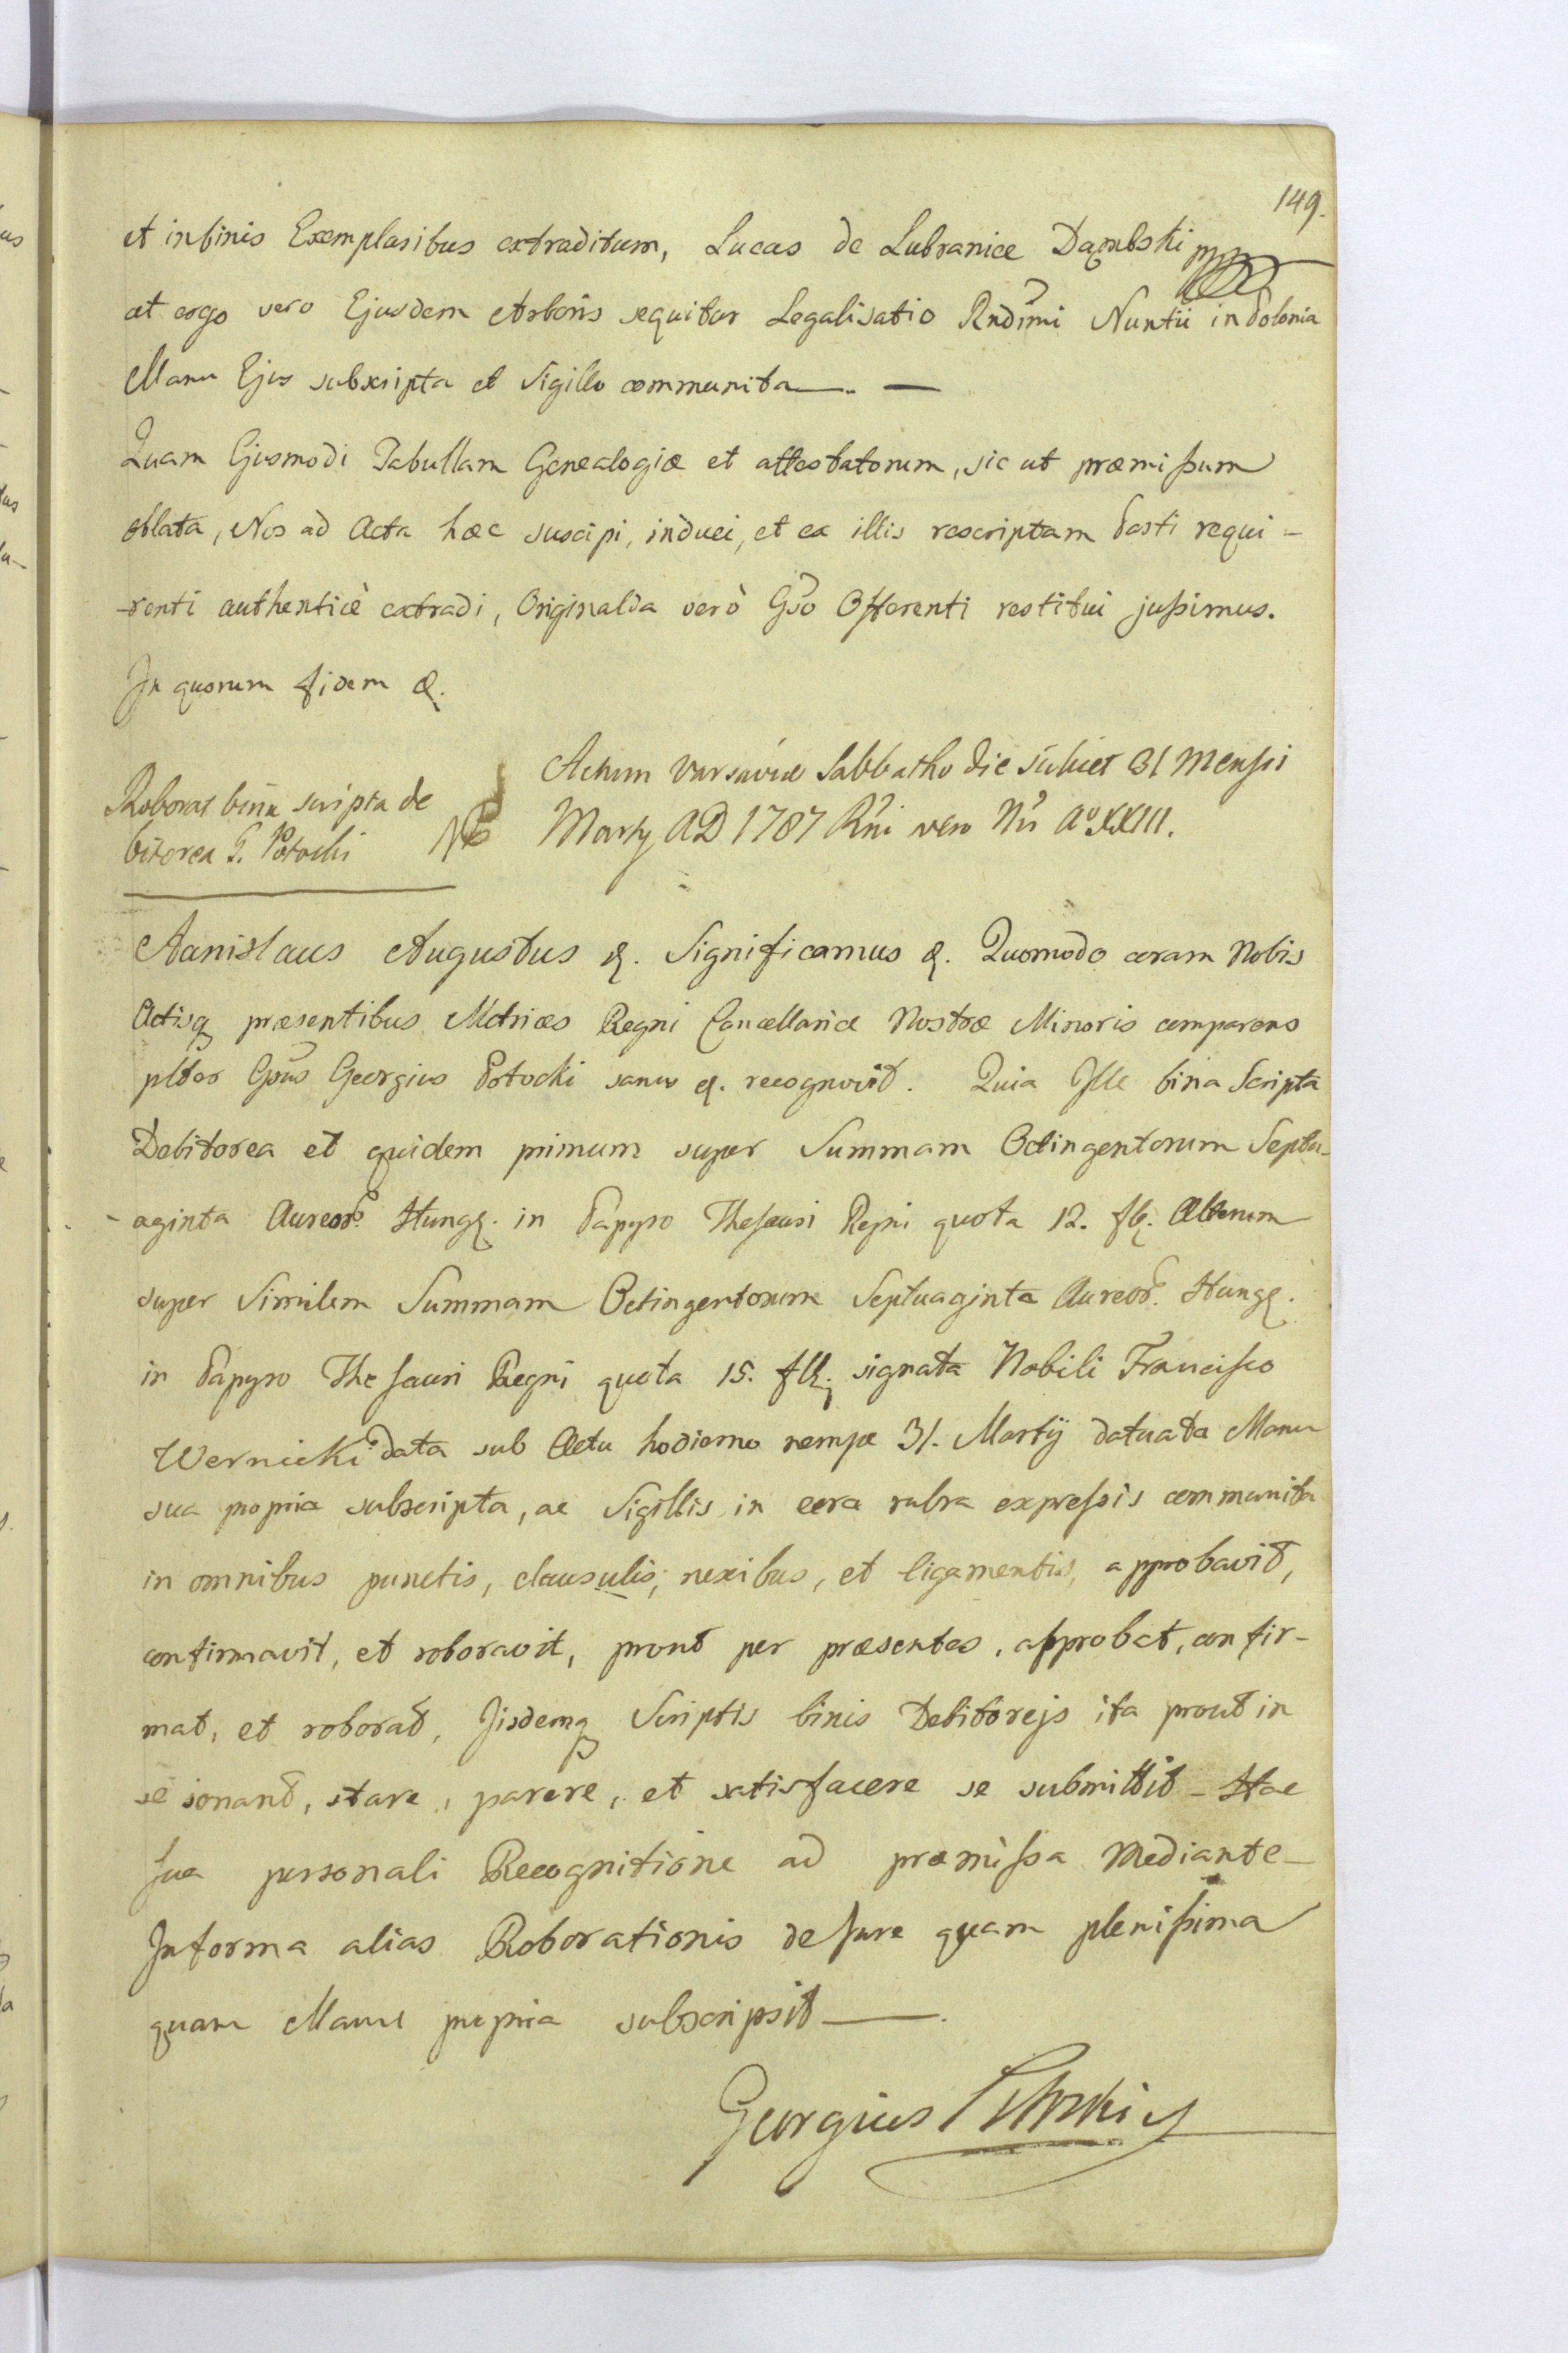 149.
et in binis Exemplaribus extraditum, Lucas de Lubranice Dąmbski mpp
at ergo vero Ejusdem Arboris sequitur Legalisatio Rndimi Nuntii in Polonia
Manu Ejus subscripta et Sigillo communita —. —
Quam Ejusmodi Tabullam Genealogiæ et attestatorum, sic ut præmißum
oblata, Nos ad Acta hæc suscipi, induci, et ex illis rescriptam Parti requi-
-renti authenticè extradi, Originalia verò Gso Offerenti restitui jußimus.
In quorum fidem &.
Roborat bina scripta de
bitorea G. Potocki
Actum Varsaviæ Sabbatho die scilicet 31 Mensis
Martÿ AD 1787 Rni vero Nri Ao XXIII.
Stanislaus Augustus &. Significamus &. Quomodo coram Nobis
Actisq præsentibus Metrices Regni Cancellariæ Nostræ Minoris comparens
plter Gsus Georgius Potocki sanus &. recognovit. Quia Ille bina Scripta
Debitorea et quidem primum super Summam Octingentorum Septu-
-aginta Aureor. Hung. in Papyro Thesauri Regni quota 12. fl. Alterum
super Similem Summam Octingentorum Septuaginta Aureor. Hung.
in Papyro Thesauri Regni quota 15. fl. signata Nobili Francisco
Wernicki data sub Actu hodierno nempe 31. Martÿ datuata Manu
sua propria subscripta, ac Sigillis in cera rubra expreßis communita
in omnibus punctis, clausulis, nexibus, et ligamentis, approbavit,
confirmavit, et roboravit, prout per præsentes, approbat, confir-
mat, et roborat, Iisdemq Scriptis binis Debitorejs ita prout in
se sonant, stare, parere, et satisfacere se submittit – Hac
sua personali Recognitione ad præmißa Mediante –
In forma alias Roborationis de Jure quam plenißima
quam Manu propria subscripsit —.
Georgius Potocki